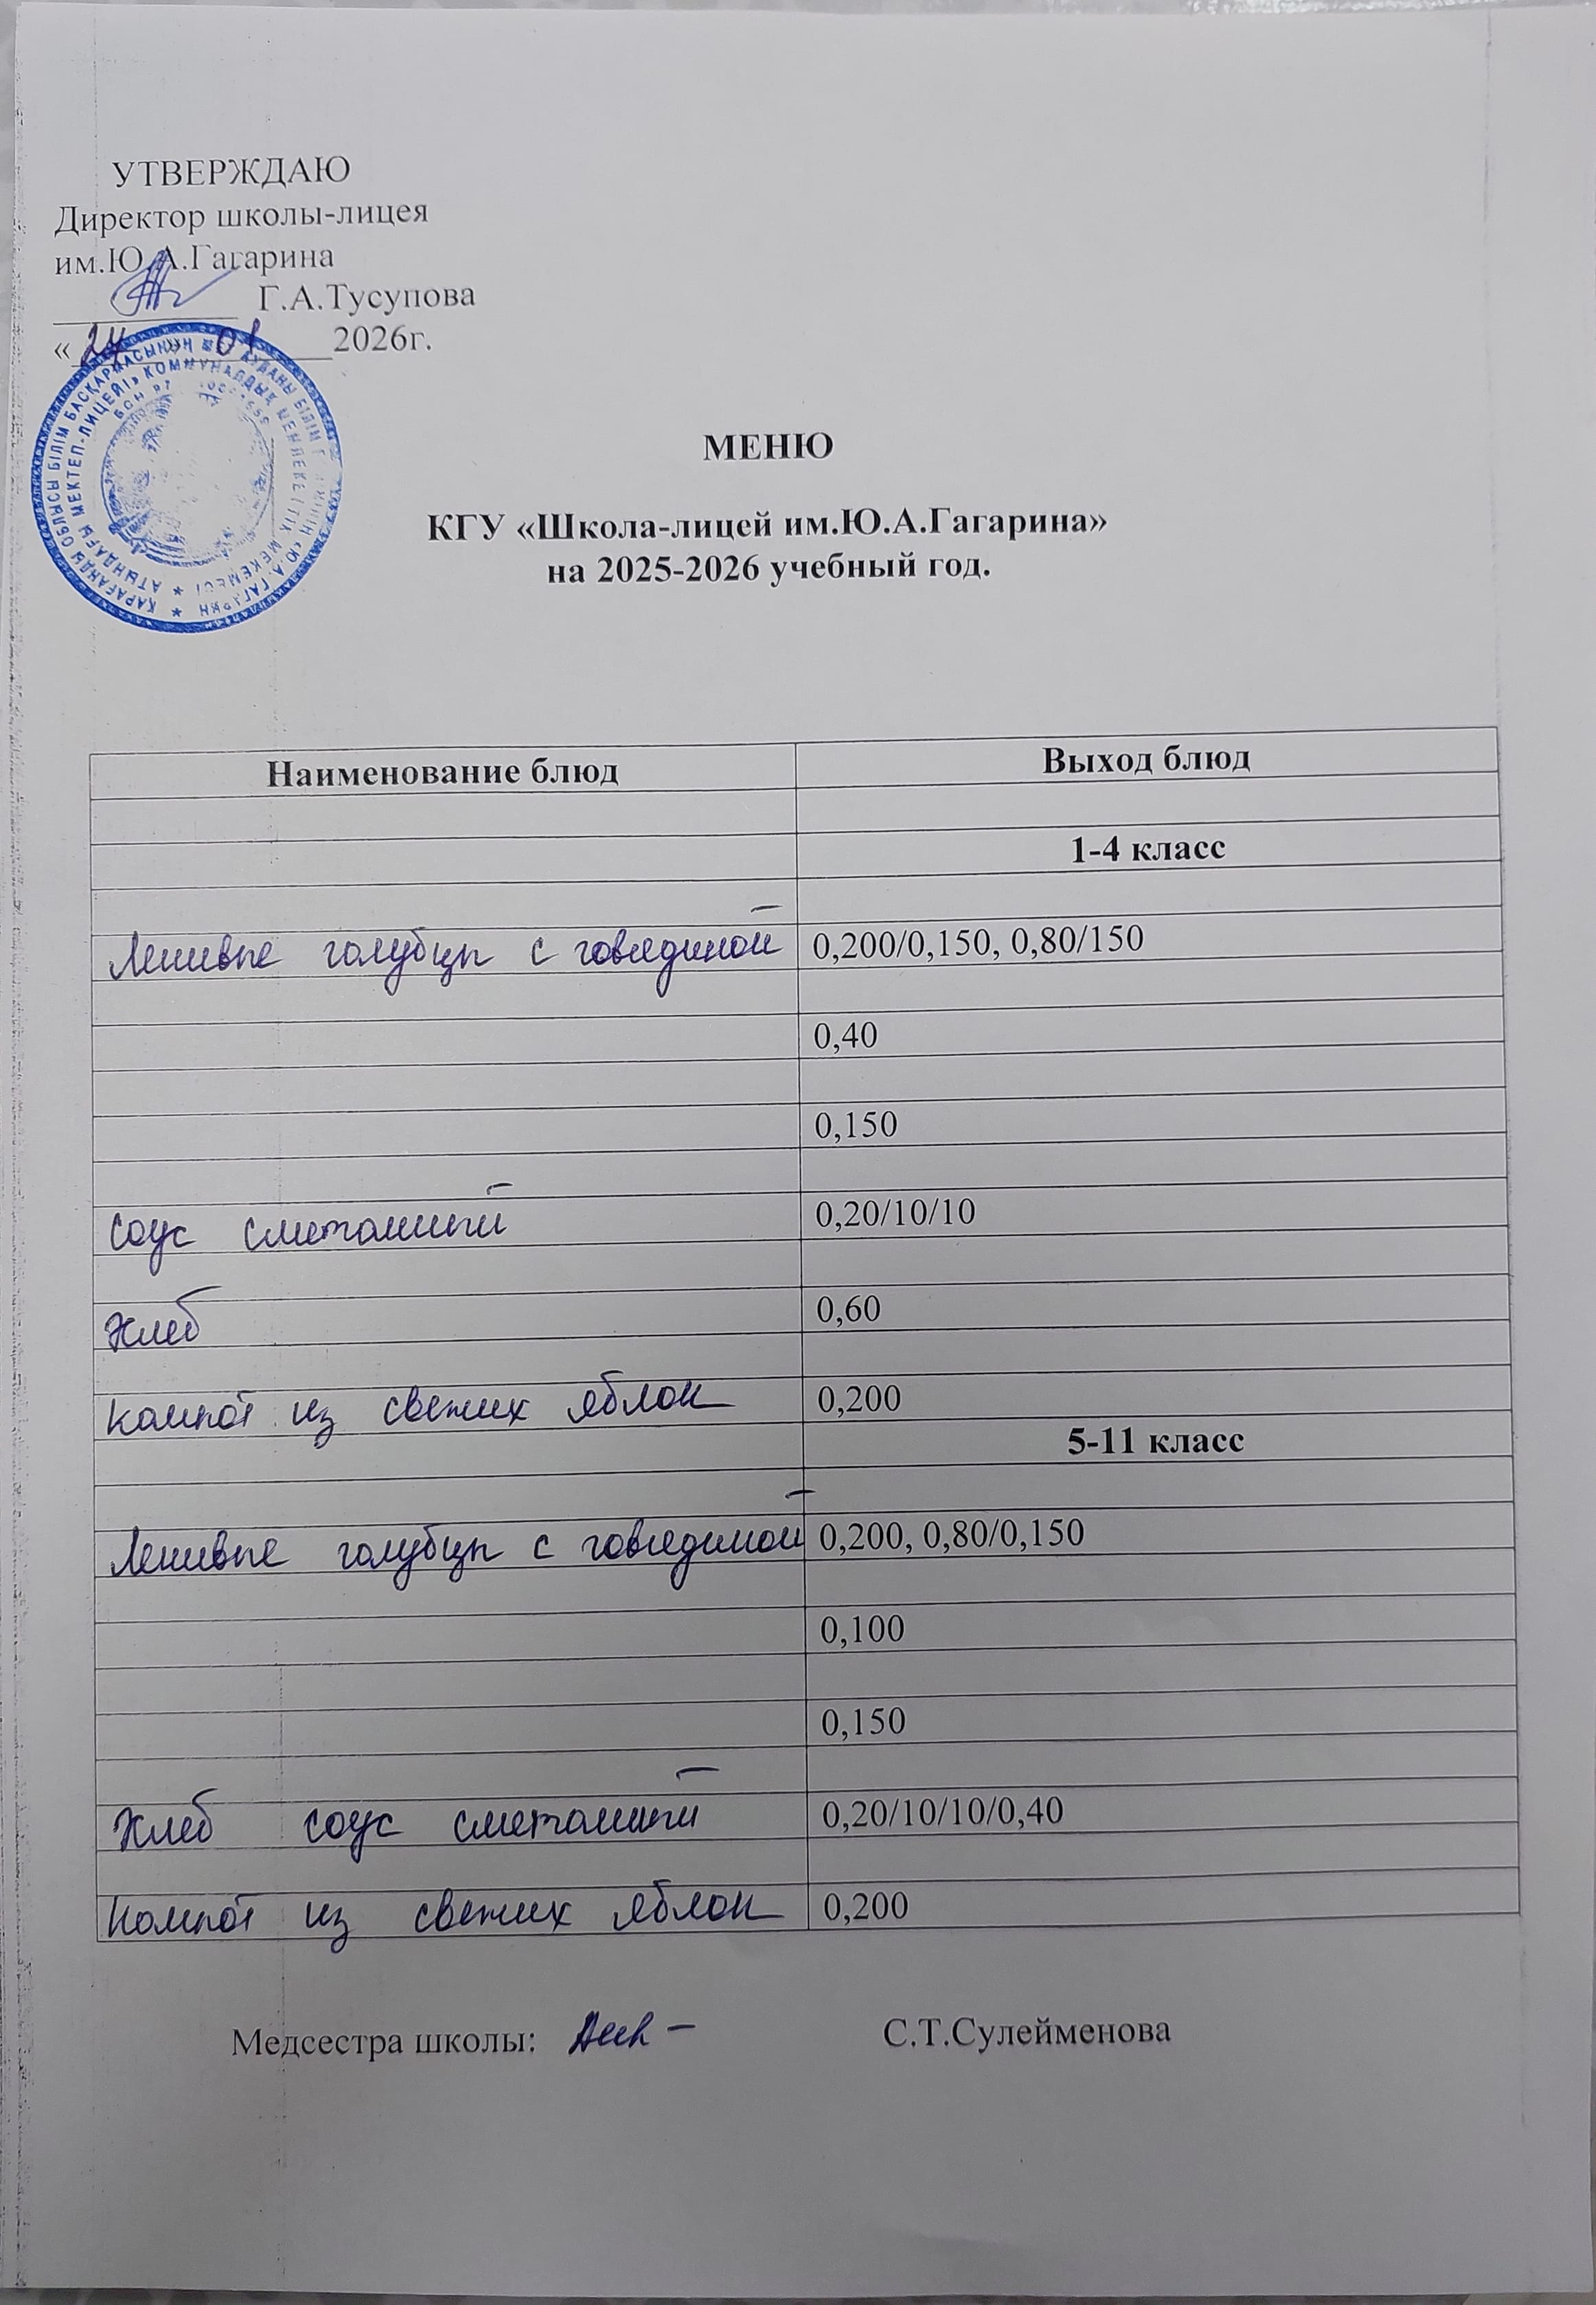 УТВЕРЖДАЮ
Директор школы-лицея
им.Ю.А.Гагарина
Г.А.Тусупова
«24» 01 2026г.
МЕНЮ
КГУ «Школа-лицей им.Ю.А.Гагарина»
на 2025-2026 учебный год.
Наименование блюд Выход блюд
1-4 класс
Ленивые голубцы с говядиной 0,200/0,150, 0,80/150
0,40
0,150
Соус сметанный 0,20/10/10
Хлеб 0,60
Компот из свежих яблок 0,200
5-11 класс
Ленивые голубцы с говядиной 0,200, 0,80/0,150
0,100
0,150
Хлеб соус сметанный 0,20/10/10/0,40
Компот из свежих яблок 0,200
Медсестра школы: С.Т.Сулейменова